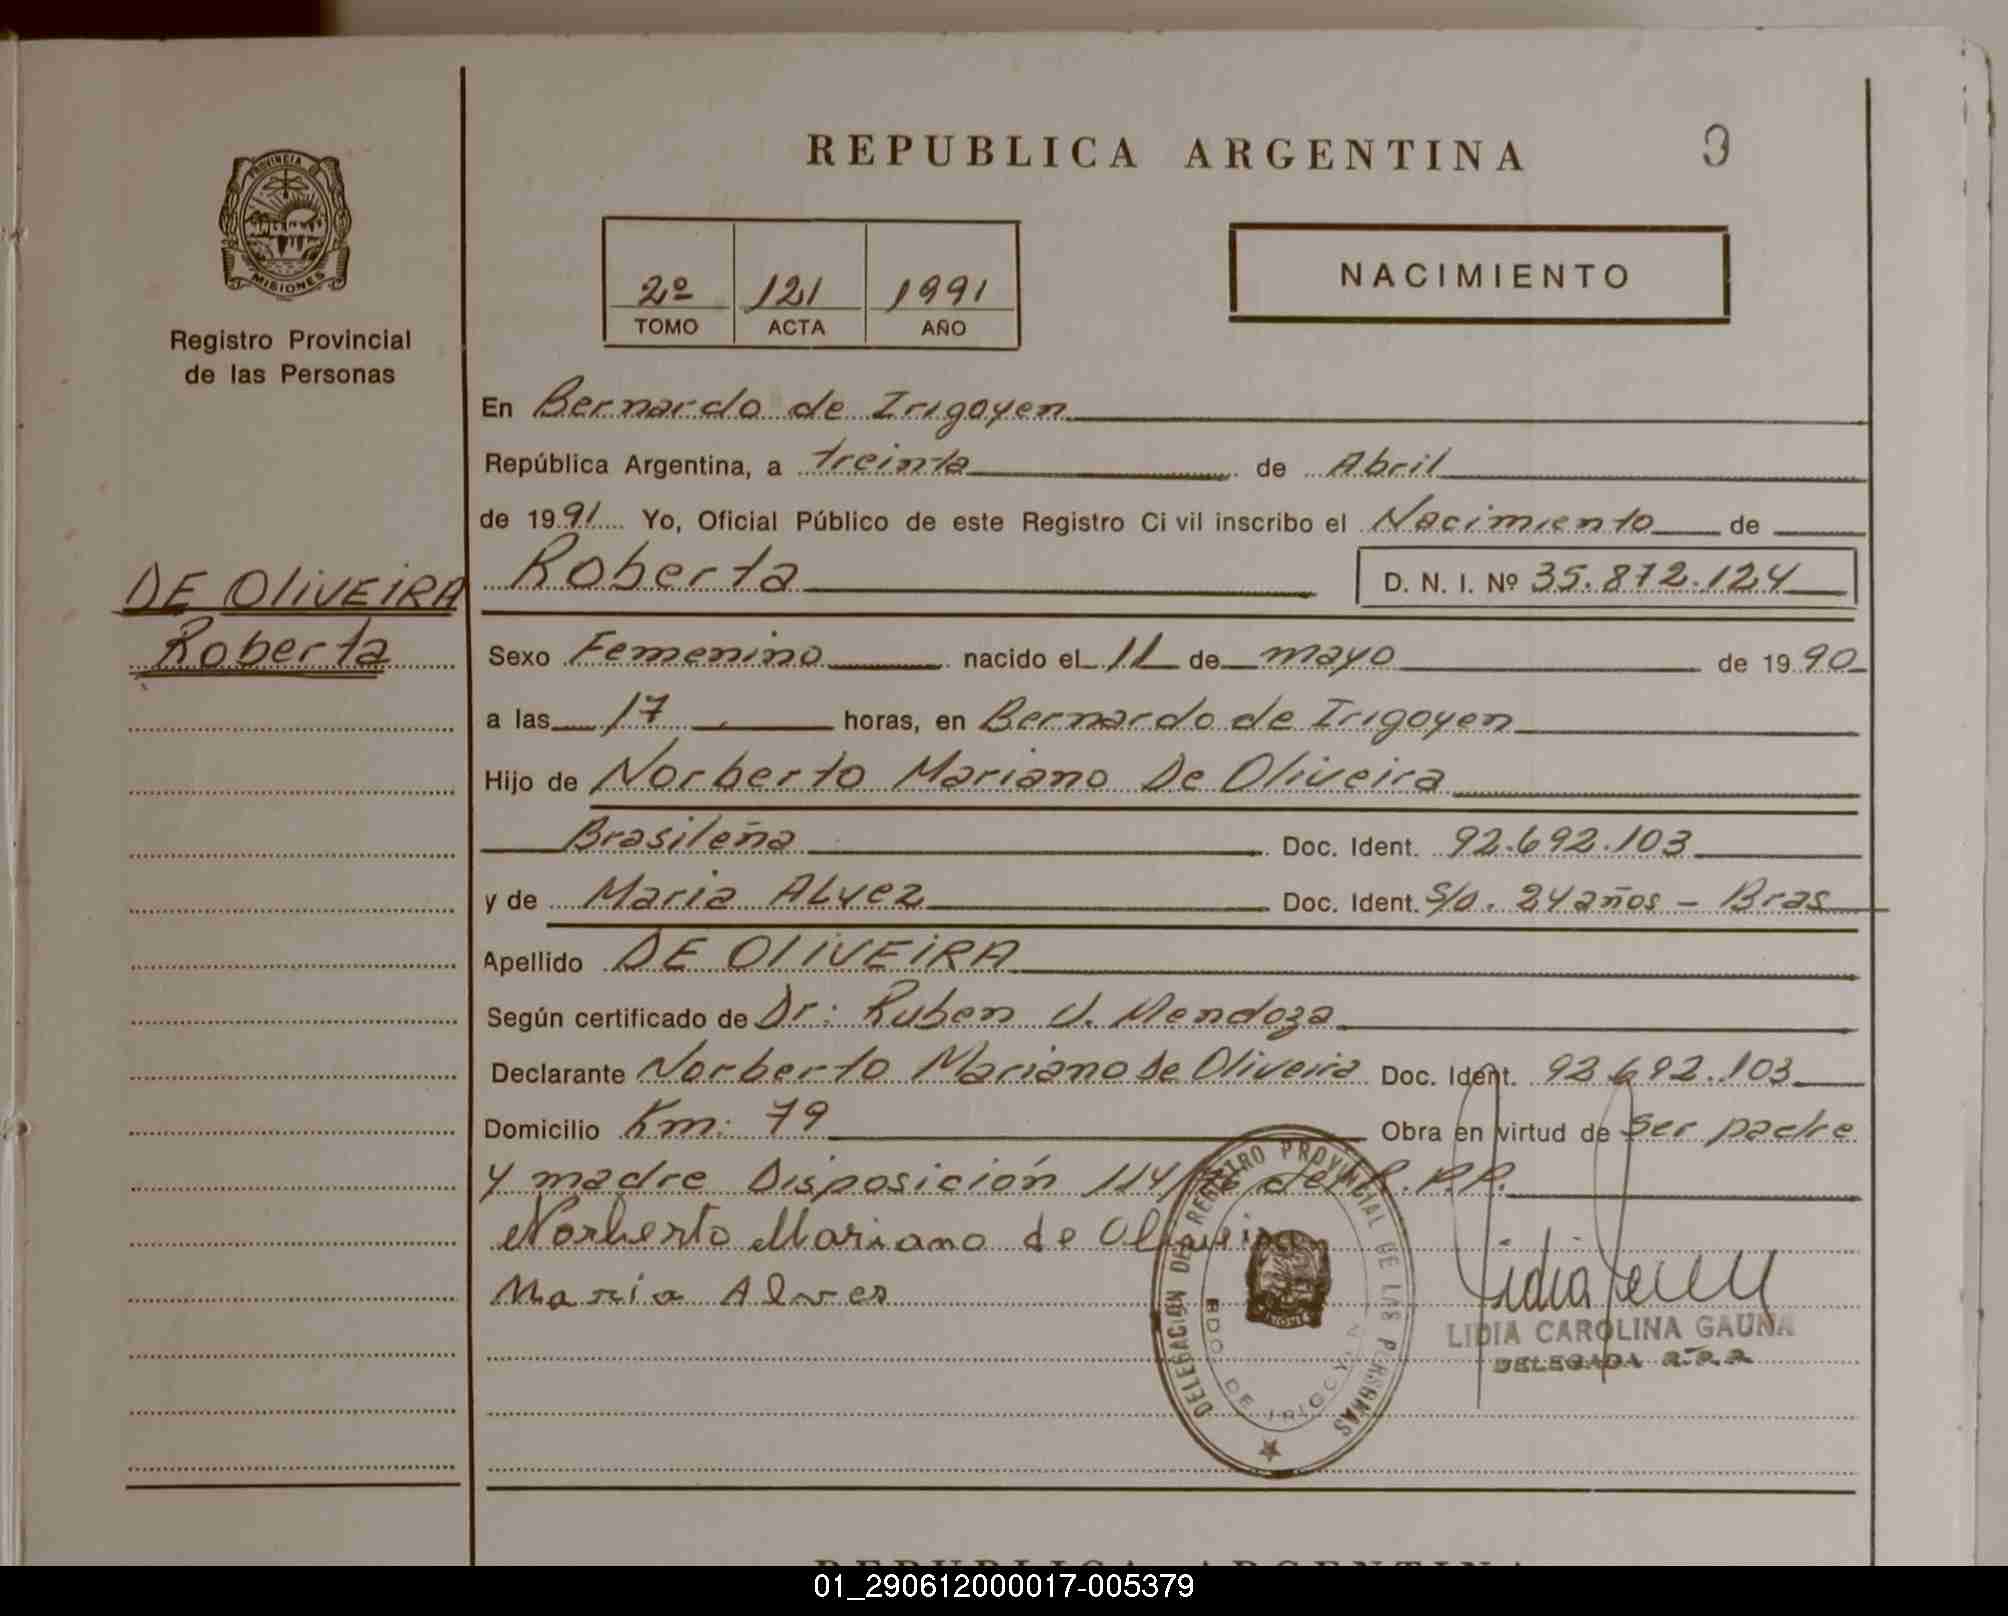 REPUBLICA ARGENTINA
PROVINCIA DE
MISIONES
Registro Provincial
de las Personas
2º 121 1991
TOMO ACTA AÑO
NACIMIENTO
En Bernardo de Irigoyen
República Argentina, a treinta de Abril
de 1991 Yo, Oficial Público de este Registro Ci vil inscribo el Nacimiento de
DE OLIVEIRA
Roberta
Roberta D. N. I. Nº 35.872.124
Sexo Femenino nacido el 11 de mayo de 1990
a las 17 horas, en Bernardo de Irigoyen
Hijo de Norberto Mariano De Oliveira
Brasileña Doc. Ident. 92.692.103
y de Maria ALvez Doc. Ident. S/D. 24 años - Bras
Apellido DE OLIVEIRA
Según certificado de Dr: Ruben J. Mendoza
Declarante Norberto Mariano De Oliveira Doc. Ident. 92.692.103
Domicilio Km: 79 Obra en virtud de ser padre
y madre Disposición 114/ del R.P.P.
Norberto Mariano de Oliveira
Maria Alves
DELEGACION DEL REGISTRO PROVINCIAL DE LAS PERSONAS
BDO. DE IRIGOYEN
LIDIA CAROLINA GAUNA
DELEGADA R.P.P.
REPUBLICA ARGENTINA
01_290612000017-005379